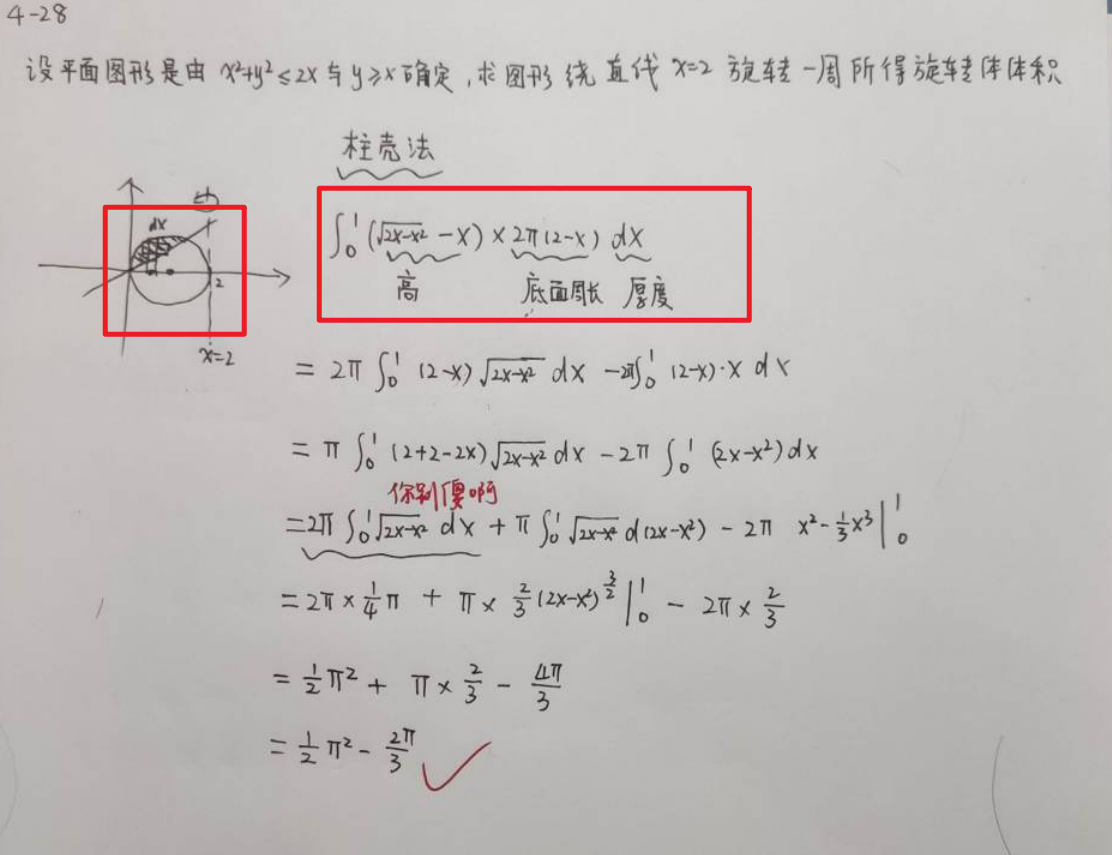 4-28
设平面图形是由 x²+y²≤2x 与 y≥x 确定,求图形绕直线 x=2 旋转一周所得旋转体体积
柱壳法
dx
2
x=2
∫₀¹(√(2x-x²) - x) × 2π(2-x) dx
高 底面周长 厚度
= 2π ∫₀¹ (2-x)√(2x-x²) dx - 2π∫₀¹ (2-x)·x dx
= π ∫₀¹ (2+2-2x)√(2x-x²) dx - 2π ∫₀¹ (2x-x²)dx
你别傻啊
=2π ∫₀¹√(2x-x²) dx + π ∫₀¹ √(2x-x²) d(2x-x²) - 2π x² - ⅓x³|₀¹
= 2π × ¼π + π × ⅔(2x-x²)^(3/2)|₀¹ - 2π × ⅔
= ½π² + π × ⅔ - 4π/3
= ½π² - 2π/3